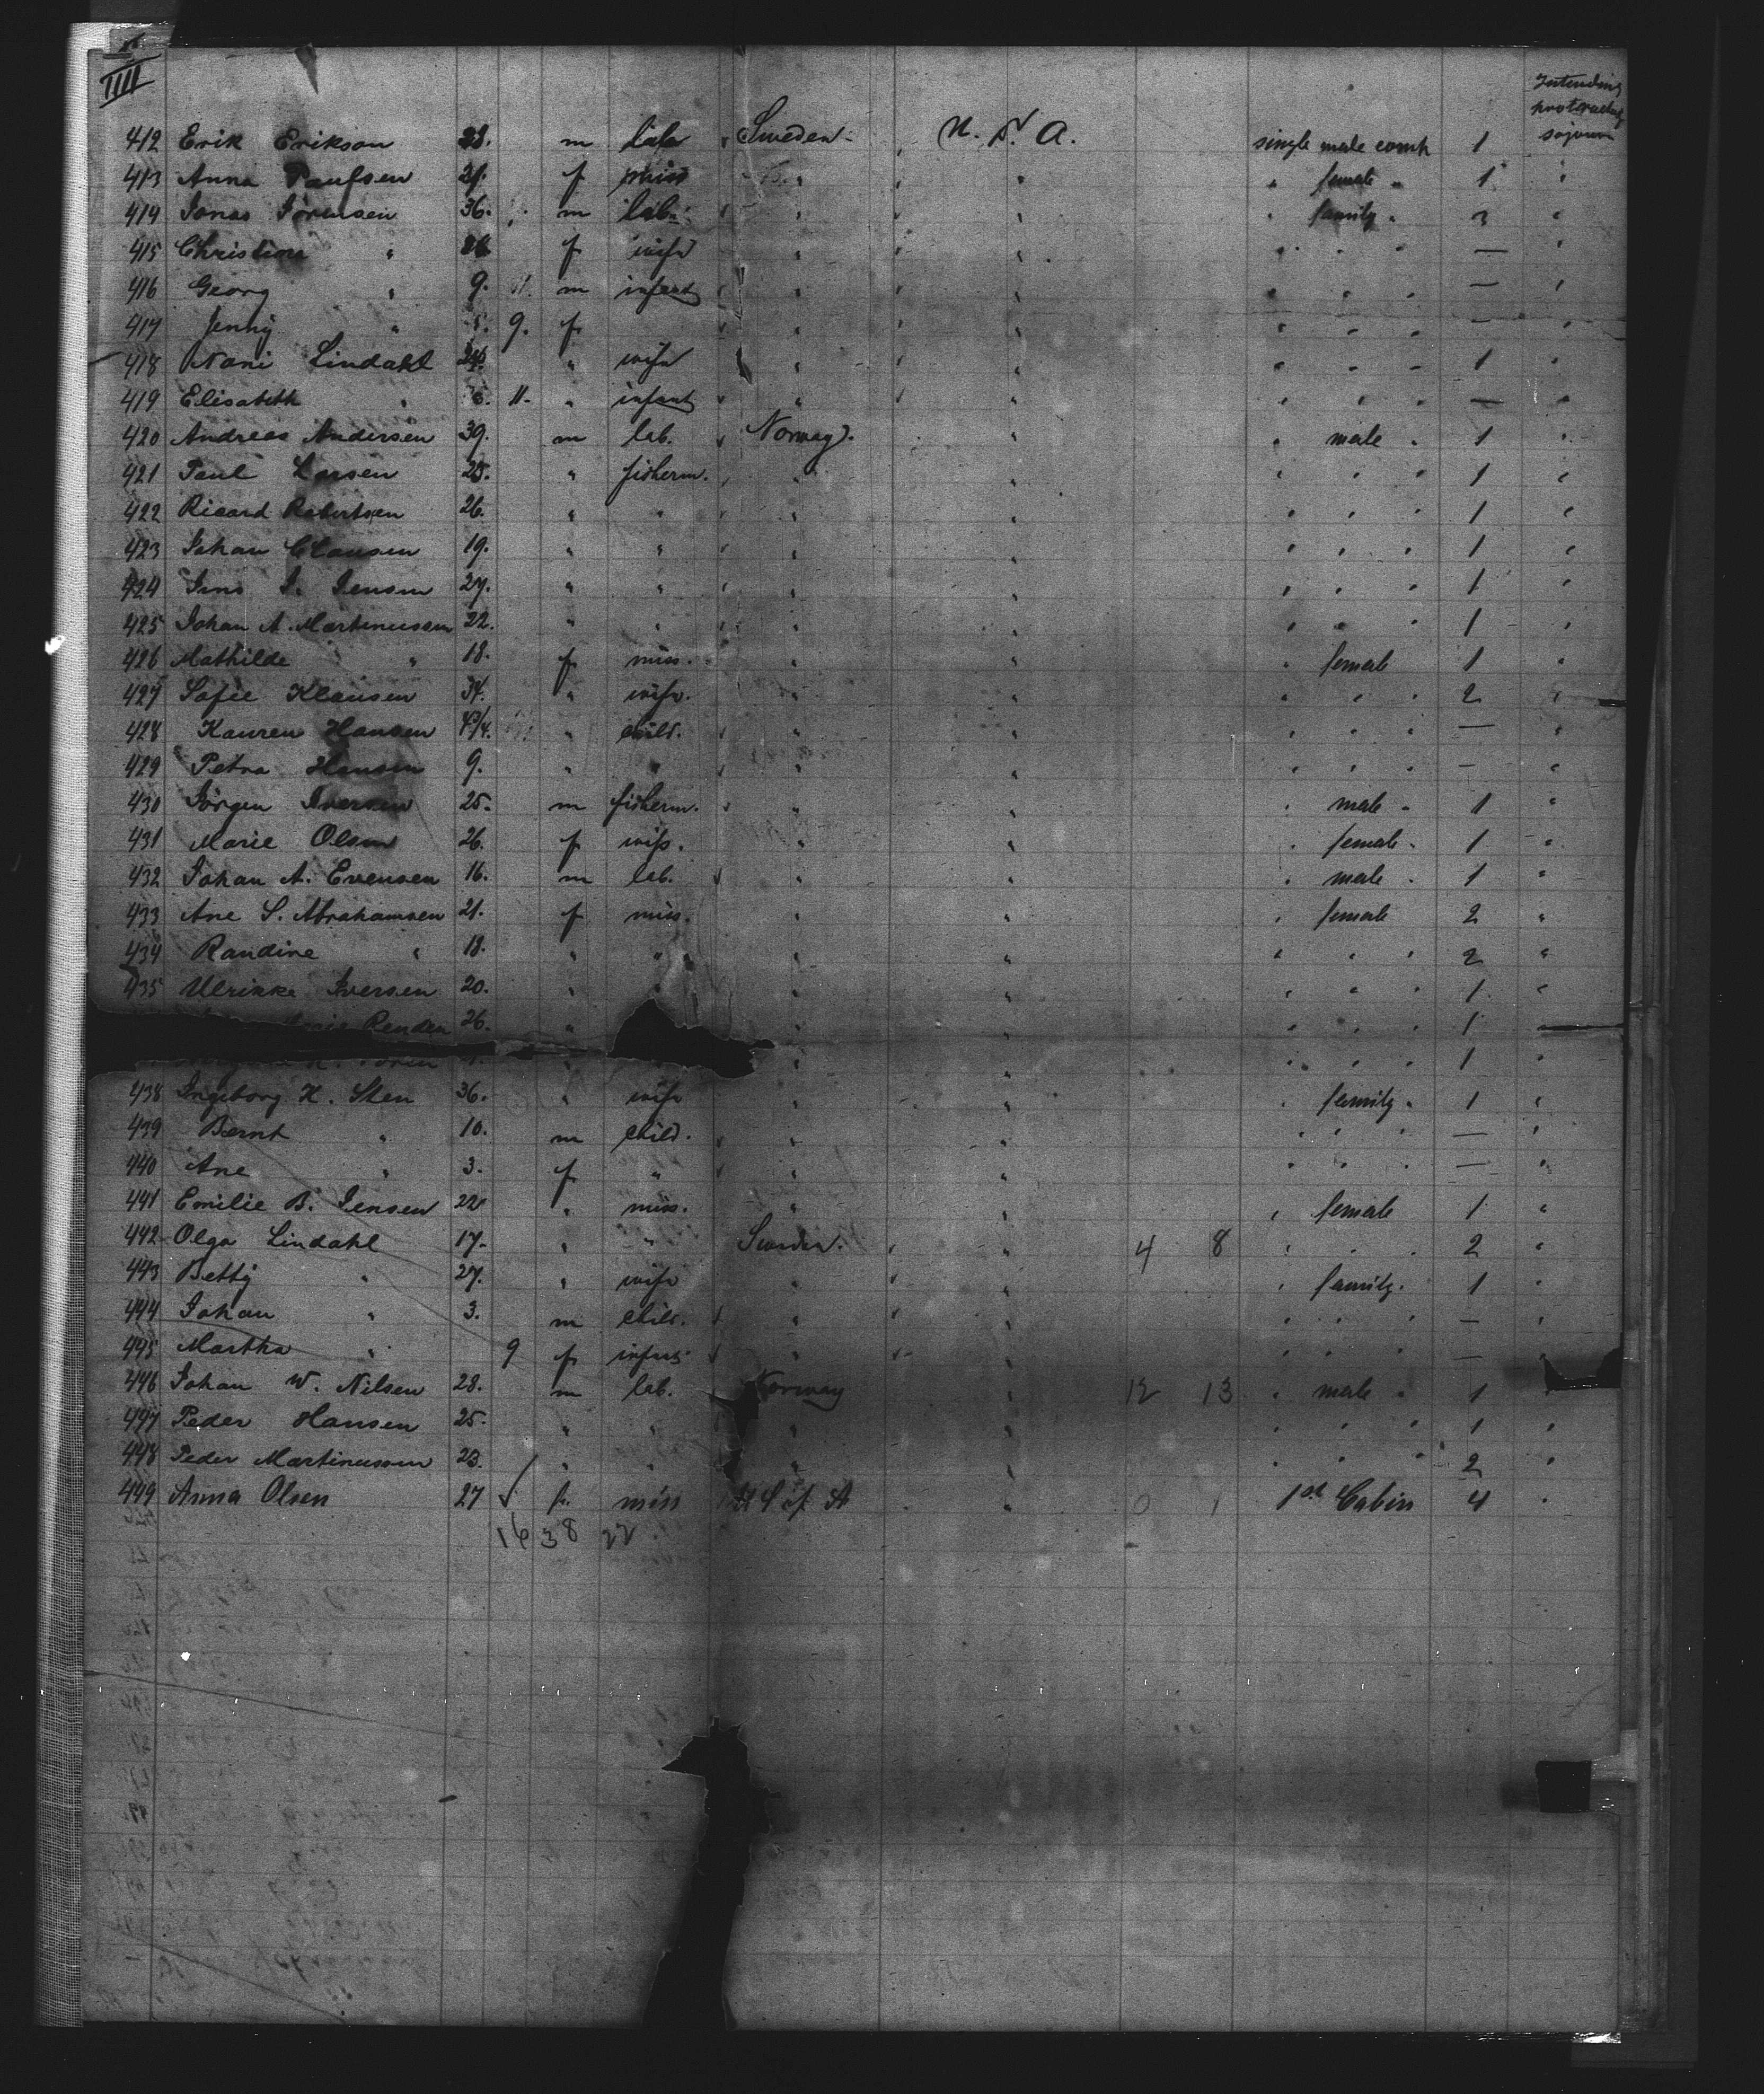 IIII
Intending
protracting
sojourn
412 Erik Erikson 28. m lab Sweden. U. S. A. single male comp 1
413 Anna Paulsen 21. f miss " " " female " 1 "
414 Jonas Sörensen 36. m lab. " " " family " 3 "
415 Christian " f wife " " " " " — "
416 Georg " 9. 11. m infant " " " " " — "
417 Jenny " 9. f " " " " " — "
418 Nani Lindahl 26. " wife " " " " " 1 "
419 Elisabeth " 11. " infant " " " " " — "
420 Andreas Andersen 39. m lab. Norway. " " male " 1 "
421 Paul Larsen 25. " fisherm. " " " " " 1 "
422 Ricard Robertsen 26. " " " " " " " 1 "
423 Johan Clausen 19. " " " " " " " 1 "
424 Jens J. Jensen 27. " " " " " " " 1 "
425 Johan A. Martinussen 22. " " " " " " " 1 "
426 Mathilde " 18. f miss. " " " female 1 "
427 Sofie Klausen 34. " wife. " " " " " 2 "
428 Kauren Hansen " child. " " " " " — "
429 Petra Hansen 9. " " " " " " " — "
430 Jörgen Iversen 25. m fisherm. " " " male " 1 "
431 Marie Olsen 26. f wife. " " " female " 1 "
432 Johan A. Evensen 16. m lab. " " " male " 1 "
433 Ane S. Abrahamsen 21. f miss. " " " female 2 "
434 Randine " 18. " " " " " " " 2 "
435 Ulrikke Iversen 20. " " " " " " " 1 "
Renden 26. " " " " " " 1
" " " " " 1 "
438 Ingeborg H. Sten 36. " wife " " " family " 1 "
439 Bernt " 10. m child. " " " " " — "
440 Ane " 3. f " " " " " " — "
441 Emilie B. Jensen 22 " miss. " " " female 1 "
442 Olga Lindahl 17. " " Sweden. " " 4 8 " " " 2 "
443 Betty " 27. " wife " " " family. 1 "
444 Johan " 3. m child. " " " " " — "
445 Martha " 9 f infant " " " " " — "
446 Johan W. Nilsen 28. m lab. Norway " 12 13 " male " 1 "
447 Peder Hansen 25. " " " " " " " 1 "
448 Peder Martinussen 23. " " " " " " " 2 "
449 Anna Olsen 27 f. miss U S of A " 0 1 1st Cabin 4 "
16 38 22